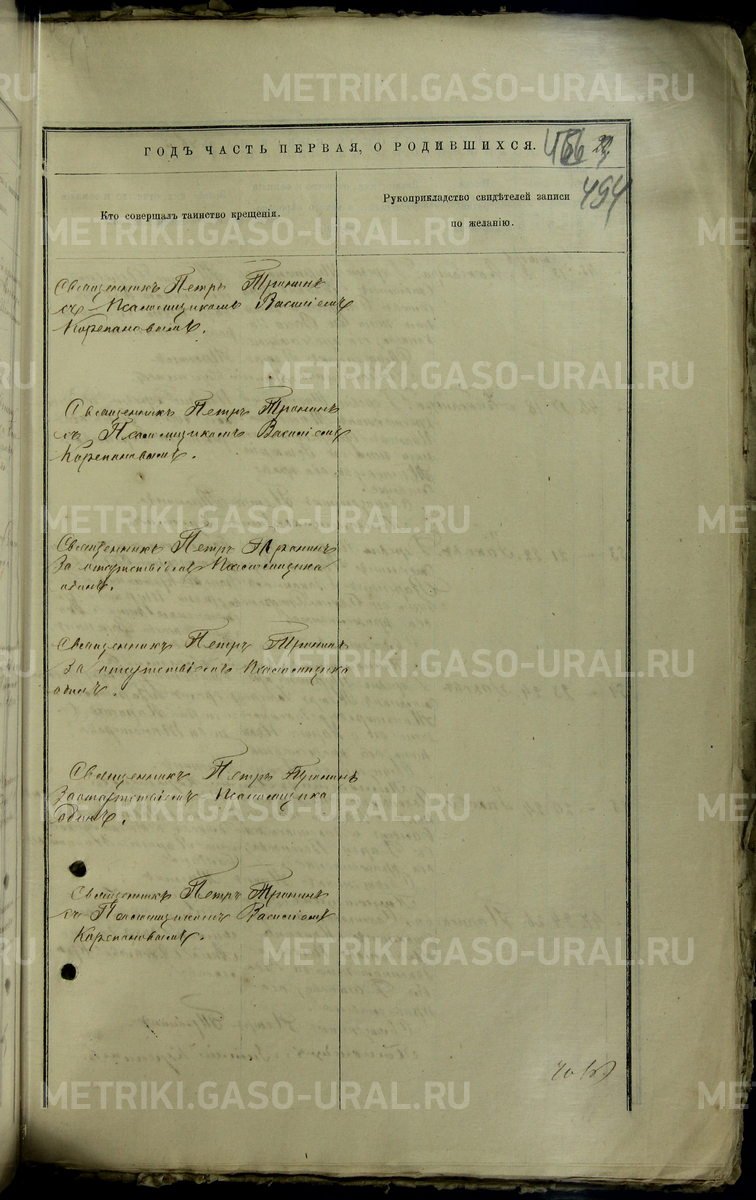 ГОДЪ ЧАСТЬ ПЕРВАЯ, О РОДИВШИХСЯ.
494
Кто совершалъ таинство крещенія.
Рукоприкладство свидѣтелей записи
по желанію.
Священникъ Петръ Тронинъ
съ Псаломщикомъ Василіемъ
Корепановымъ.
Священникъ Петръ Тронинъ
съ Псаломщикомъ Василіемъ
Корепановымъ.
Священникъ Петръ Тронинъ
За отсутствіемъ Псаломщика
одинъ.
Священникъ Петръ Тронинъ
За отсутствіемъ Псаломщика
одинъ.
Священникъ Петръ Тронинъ
За отсутствіемъ Псаломщика
одинъ.
Священникъ Петръ Тронинъ
съ Псаломщикомъ Василіемъ
Корепановымъ.
METRIKI.GASO-URAL.RU